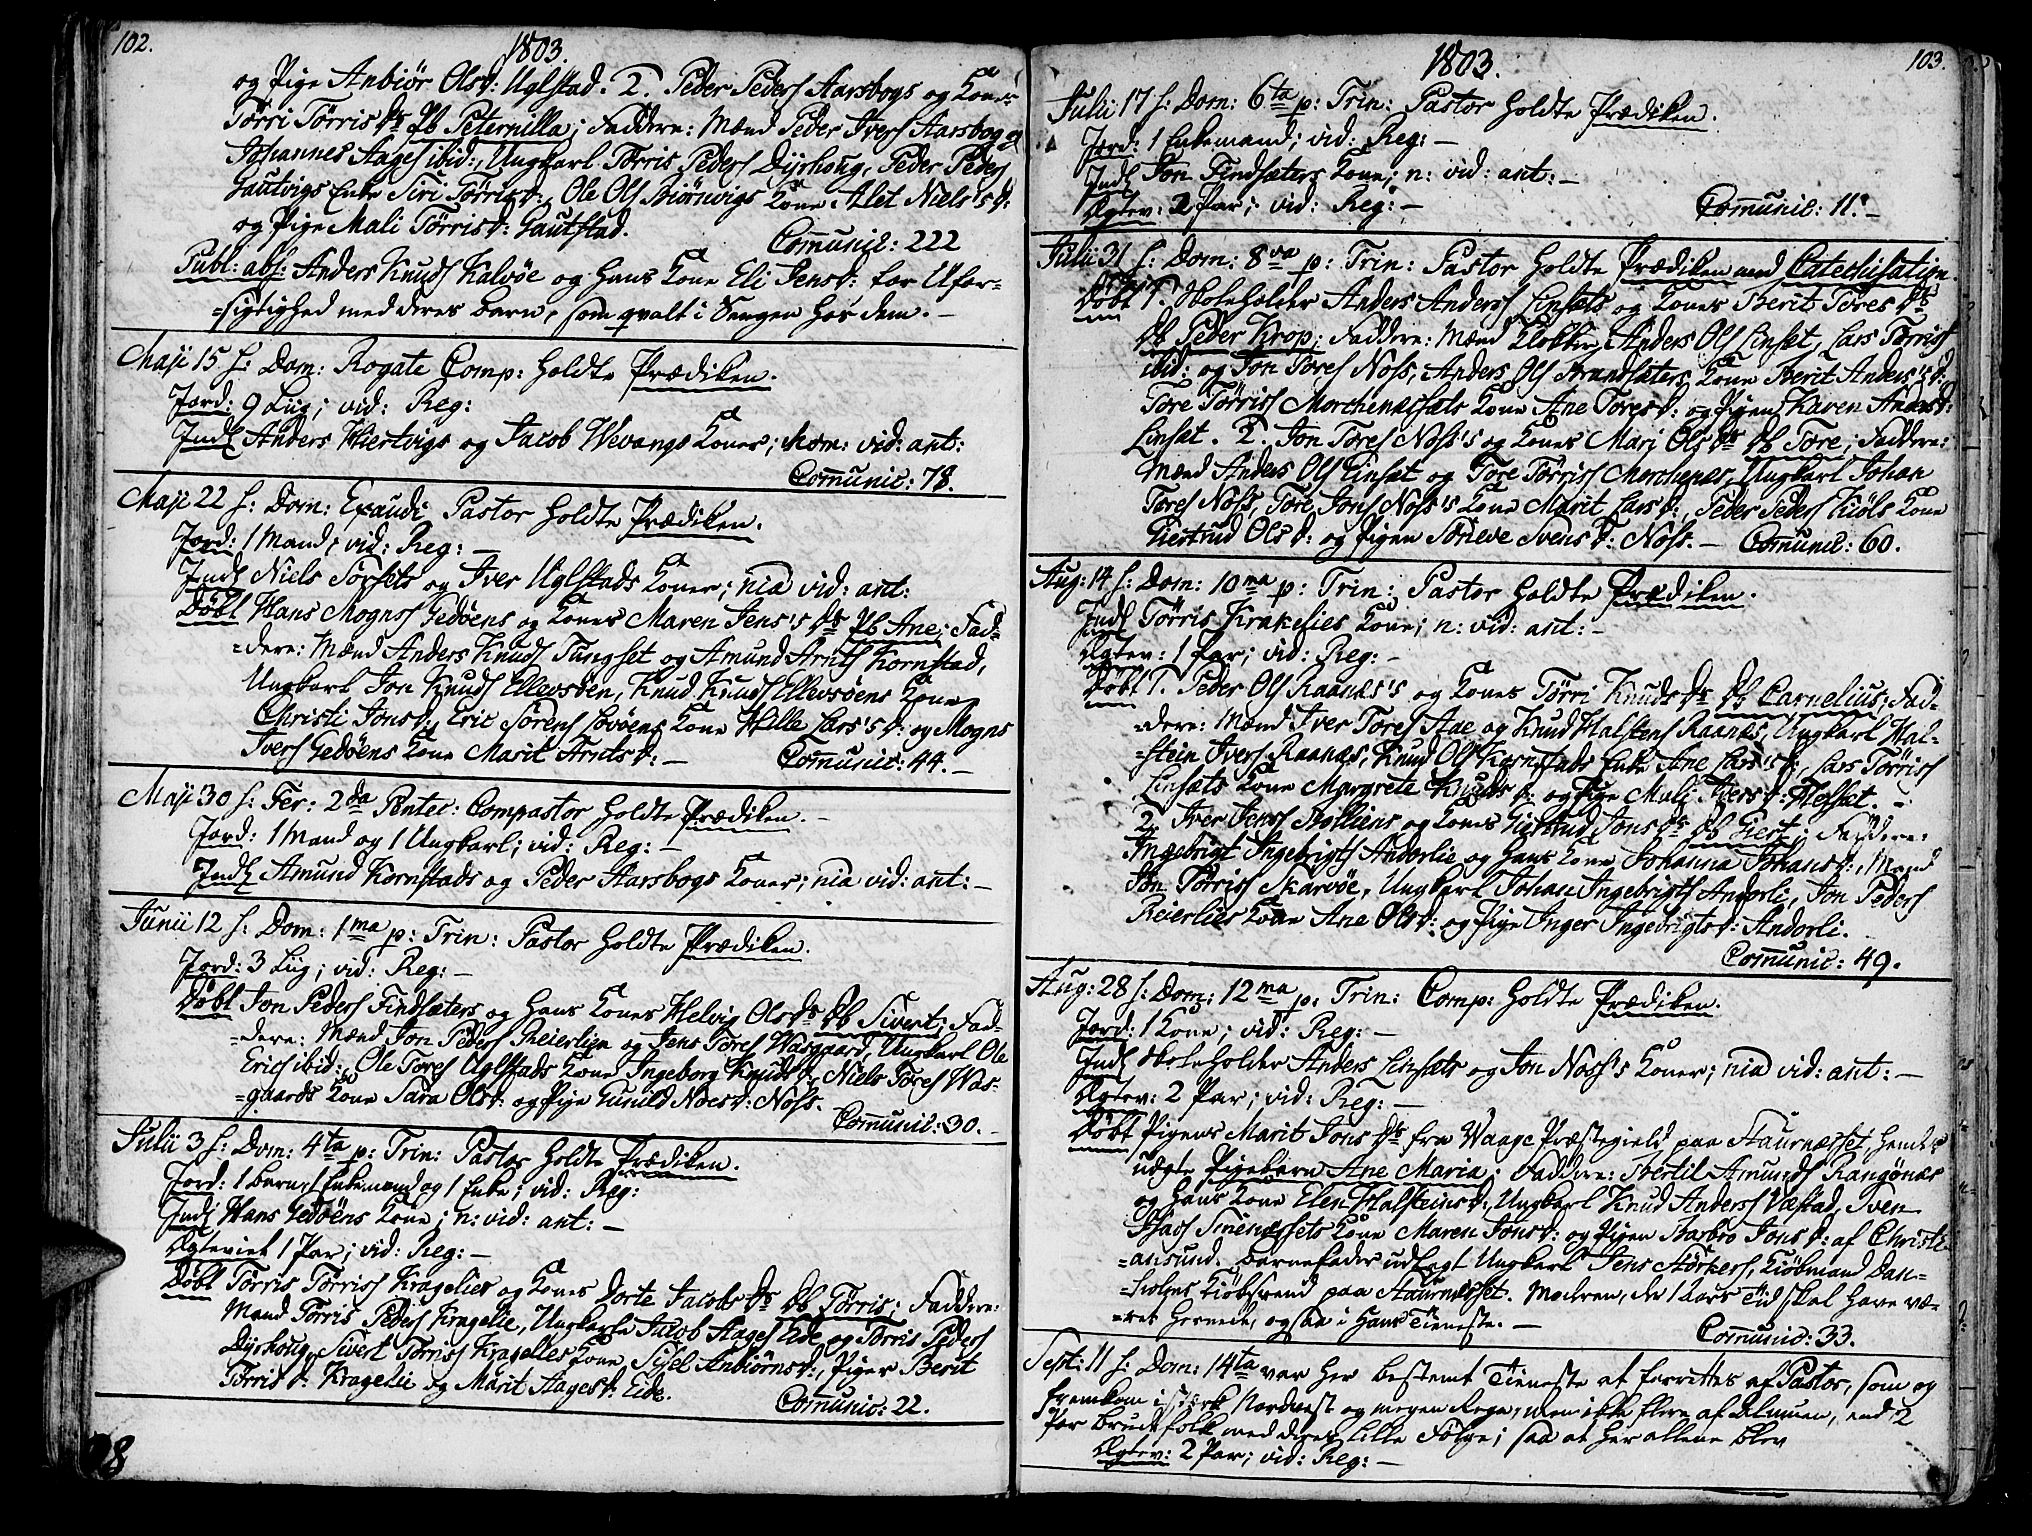 102.
1803.
og Pige Anbiør Olsd: Uglstad. 2. Peder Peders Aarsbogs og Kones
Tørri Tørrisdr Pb Peternilla; Faddere: Mænd Peder Ivers Aarsbog og
Johannes Aages ibid:, Ungkarl Tørris Peders Dyrhoug, Peder Peders
Gautvigs Enke Siri Tørrisd:, Ole Ols Biørnvigs Kone Alet Niels's d:
og Pige Mali Tørrisd: Gautstad.
Comunic: 222
Publ: abs: Anders Knuds Kalvøe og Hans Kone Eli Jensd: for Ufor-
=sigtighed med deres Barn, som qvalt i Sengen hos dem. -
Maji 15 h: Dom: Rogate Comp: holdte Prædiken.
Jord: 9 Liig; vid: Reg:
Indl Anders Hiertvigs og Jacob Wevangs Koner; nom: vid: ant:
Comunic: 78.
Maji 22 h: Dom: Exaudi Pastor holdte Prædiken.
Jord: 1 Mand; vid: Reg: -
Indl Niels Sørsets og Iver Uglstads Koner; nia vid: ant:
Døbt Hans Mogns Gedøens og Kones Maren Jens's dr Pb Ane; Fad-
=dere: Mænd Anders Knuds Tungset og Amund Arnts Kornstad,
Ungkarl Jon Knuds Ellevsøen, Knud Knuds Ellevsøens Kone
Christi Jonsd:, Eric Sørens Lovøens Kone Hille Lars's d: og Mogns
Ivers Gedøens Kone Marit Arntsd: -
Comunic: 44. -
Maji 30 h: Fer: 2da Pentec: Compastor holdte Prædiken. -
Jord: 1 Mand og 1 Ungkarl; vid: Reg: -
Indl Amund Kornstads og Peder Aarsbogs Koner; nia vid: ant: -
Junii 12 h: Dom: 1ma p: Trin: Pastor holdte Prædiken.
Jord: 3 Liig; vid: Reg: -
Døbt Jon Peders Findsæters og Hans Kones Helvig Olsdr Db Sivert; Fad-
=dere: Mænd Jon Peders Reierlien og Jens Tores Wasgaard, Ungkarl Ole
Erics ibid:, Ole Tores Uglstads Kone Ingeborg Knudsd:, Niels Tores Was-
=gaards Kone Sara Olsd: og Pige Gunild Noesd: Noss.
Comunic: 30. -
Julii 3 h: Dom: 4ta p: Trin: Pastor holdte Prædiken.
Jord: 1 Barn, 1 Enkemand og 1 Enke; vid: Reg:
Indl Hans Gedøens Kone; n: vid: ant: -
Ægteviet 1 Par; vid: Reg: -
Døbt Tørris Tørriss Kragelies og Kones Dorte Jacobsdr Db Tørris; Faddere:
Mænd Tørris Peders Kragelie, Ungkarle Jacob Aages Eide og Tørris Peders
Dyrhoug, Sivert Tørriss Kragelies Kone Sisel Anbiørnsd:, Piger Berit
Tørrisd: Kragelie og Marit Aagesd: Eide.
Comunic: 22.
98
1803.
103.
Julii 17 h: Dom: 6ta p: Trin: Pastor holdte Prædiken.
Jord: 1 Enkemand; vid: Reg: -
Indl Jon Findsæters Kone; n: vid: ant: -
Ægtev: 2 Par; vid: Reg: -
Comunic: 11. -
Julii 31 h: Dom: 8va p: Trin: Pastor holdte Prædiken med Catechisation.
Døbt 1. Skoleholder Anders Anders Linsets og Kones Berit Toresdr
Db Peder Krop; Faddere: Mænd Klokker Anders Ols Linset, Lars Tørriss
ibid: og Jon Tores Noss, Anders Ols Strandsæters Kone Berit Anders's d:
Tore Tørriss Morchenæssets Kone Ane Toresd: og Pigen Karen Andersd:
Linset. 2. Jon Tores Noss's og Kones Mari Olsdr Db Tore; Faddere:
Mænd Anders Ols Linset og Tore Tørriss Morchenæs, Ungkarl Johan
Tores Noss, Tore Jons Noss's Kone Marit Larsd:, Peder Peders Kiøls Kone
Giertrud Olsd: og Pigen Sørieve Svensd: Noss. - Comunic: 60.
Aug: 14 h: Dom: 10ma p: Trin: Pastor holdte Prædiken.
Indl Tørris Krakelies Kone; n: vid: ant: -
Ægtev: 1 Par; vid: Reg: -
Døbt 1. Peder Ols Raanæs's og Kones Tørri Knudsdr Db Carnelius; Fad-
=dere: Mænd Iver Tores Aae og Knud Halstens Raanæs, Ungkarl Hal-
=stein Ivers Raanæs, Knud Ols Kornstads Enke Ane Lars's d:, Lars Tørriss
Linsets Kone Margrete Knudsd: og Pige Mali Iversd: Flesset. -
2. Iver Jens Stolliens og Kones Giertrud Jonsdr Db Giert; Faddere:
Ingebrigt Ingebrigts Andorlie og Hans Kone Johanna Johansd:, Mand
Jon Tørriss Skarvøe, Ungkarl Johan Ingebrigts Andorli, Jon Peders
Reierlies Kone Ane Olsd: og Pige Inger Ingebrigtsd: Andorli.
Comunic: 49.
Aug: 28 h: Dom: 12ma p: Trin: Comp: holdte Prædiken.
Jord: 1 Kone; vid: Reg: -
Indl Skoleholder Anders Linsets og Jon Noss's Koner; nia vid: ant: -
Ægtev: 2 Par; vid: Reg: -
Døbt Pigens Marit Jonsdr fra Waage Præstegield paa Staurnæsset hendes
uægte Pigebarn Ane Maria; Faddere: Bertil Amunds Rangønæs
og Hans Kone Elen Halsteinsd:, Ungkarl Knud Anders Væstad, Sven
Isacs Smenæssets Kone Maren Jonsd: og Pigen Barbro Jonsd: af Christi-
=ansund. Barnefader udlegt Ungkarl Jens Størkers, Kiøbmand Dan-
=holms Kiøbsvend paa Staurnæsset. Modren, der 1 Aars Tid skal have væ-
=ret hernede, og saa i Hans Tieneste. -
Comunic: 33.
Sept: 11 h: Dom: 14ta var her bestemt Tieneste at forrettes af Pastor, som og
fremkom i stærk Nordvest og megen Regn, men ikke flere af Almuen, end 2
Par Brudefolk med deres lille Følge; saa at her allene blev
Ægtev: 2 Par; vid: Reg: -